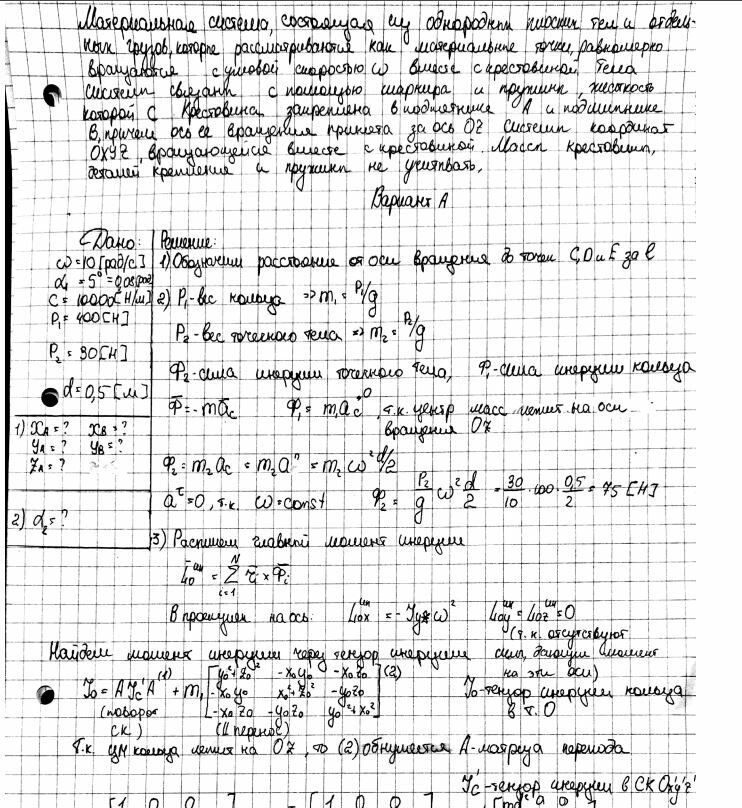 Материальная система, состоящая из однородных плоских тел и отдель-
ных грузов, которые рассматриваются как материальные точки, равномерно
вращаются с угловой скоростью ω вместе с крестовиной. Тела
системы связаны с помощью шарнира и пружины, жесткость
которой C. Крестовина закреплена в подпятнике A и подшипнике
B, причем ось ее вращения принята за ось OZ системы координат
OXYZ, вращающейся вместе с крестовиной. Массы крестовины,
деталей крепления и пружины не учитывать.
Вариант A
Дано:
ω = 10 [рад/с]
C = 10000 [Н/м]
P₁ = 400 [Н]
P₂ = 30 [Н]
d = 0,5 [м]
1) XA = ? XB = ?
YA = ? YB = ?
ZA = ?
2) α₂ = ?
Решение:
1) Обозначим расстояние от оси вращения до точек C, D и E за l
2) P₁ - вес кольца => m₁ = P₁/g
P₂ - вес точечного тела => m₂ = P₂/g
Φ₂ - сила инерции точечного тела, Φ₁ - сила инерции кольца
Φ̄ = -mā_c Φ₁ = m₁a_c⁰, т.к. центр масс лежит на оси
вращения OZ
Φ₂ = m₂a_c = m₂aⁿ = m₂ω² d/2
a^τ = 0, т.к. ω = const Φ₂ = P₂/g ω² d/2 = 30/10 · 100 · 0,5/2 = 75 [Н]
3) Распишем главный момент инерции
L̄₀^ин = Σ r̄ᵢ × Φ̄ᵢ
i=1 N
В проекциях на ось: L_ox^ин = -J_yz ω² L_oy^ин = L_oz^ин = 0
(т.к. отсутствуют
силы, дающие момент
на эти оси)
Найдем момент инерции через тензор инерции
J₀ = A J'_c A⁽¹⁾ + m₁ [y₀²+z₀² -x₀y₀ -x₀z₀
-x₀y₀ x₀²+z₀² -y₀z₀
-x₀z₀ -y₀z₀ y₀²+x₀²] (2)
(поворот
СК) (|| перенос)
J₀ - тензор инерции кольца
в т. O
т.к. ЦМ кольца лежит на OZ, то (2) обнуляется A - матрица перехода
J'_c - тензор инерции в СК Ox'y'z'
[1 0 0] [1 0 0]